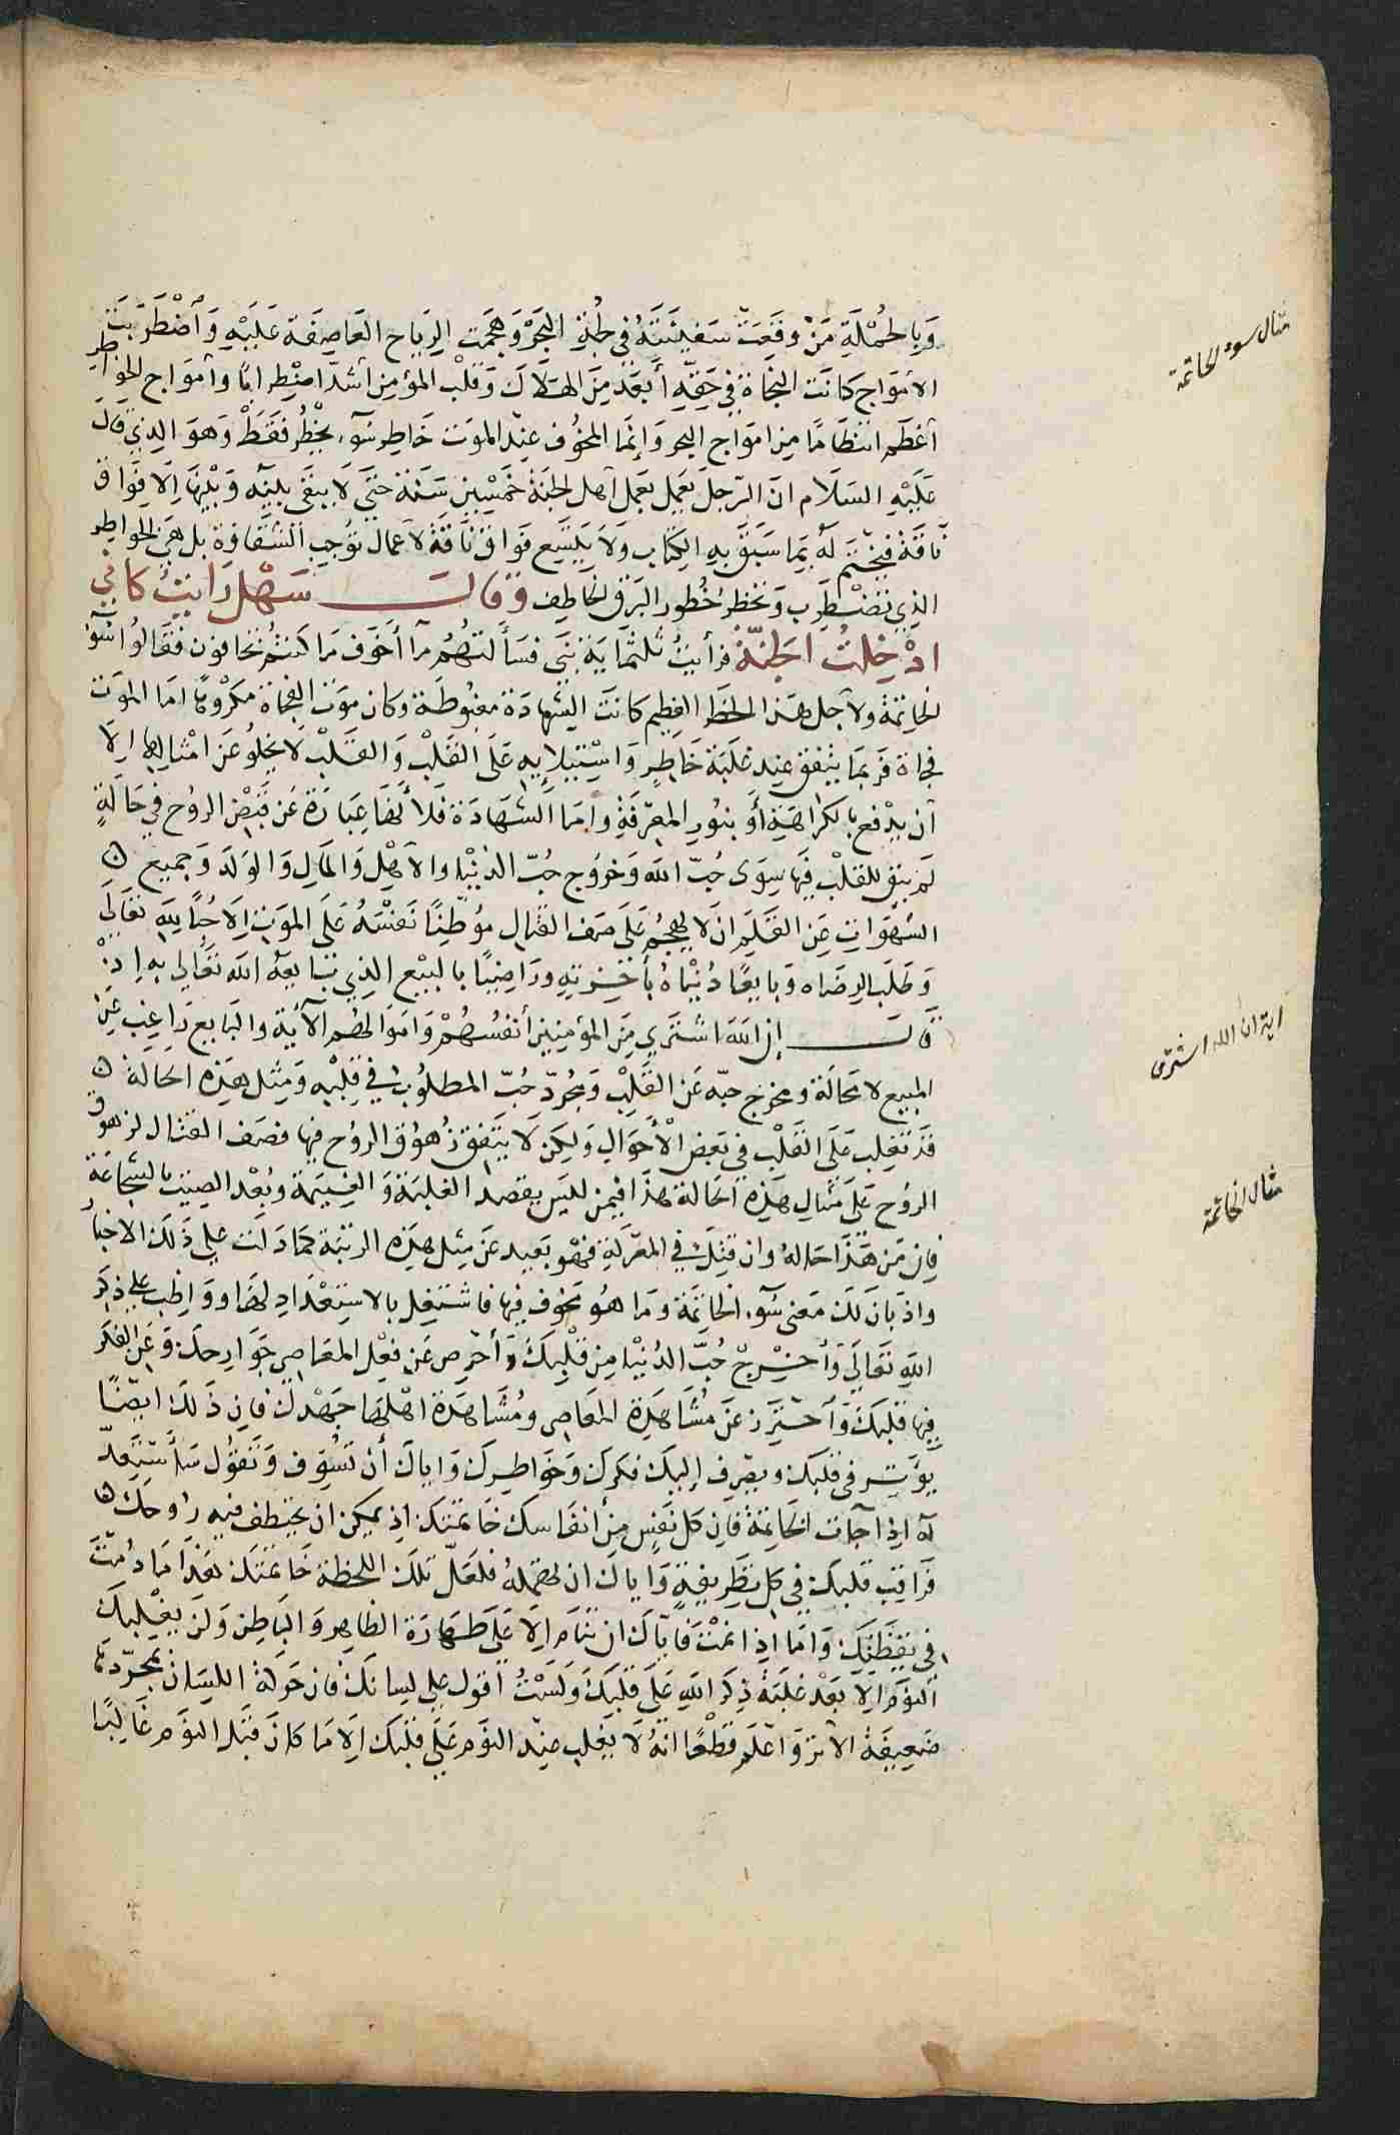 وَبالجُمْلَةِ مَنْ وقَعَتْ سَفينَتَهُ في لجُّةِ البَحْر وَهجَمَت الرِيَاح العَاصِفَة عَلَيْهِ وَاضْطَرَبَت
الامَوَاج كَانَت النجَاةَ في حَقّهِ أبعَدُ مِنَ الهَلاكَ وَقَلْب المؤمِن اشدّ اضْطِرابًا وأموَاج الخَوَاطِر
اعْظَم التطَامًا مِن امَوَاج البحر وَإنمَا المخُوف عِندَ الموَت خَاطِر سُوء يخْطرُ فقَطْ وَهوَ الذِي قالَ
عَلَيْهِ السَلَام انَ الرّجلَ يَعمِل بعَمل اهل الجَنَة خمَسْيِن سَنَة حَتىَ لا يبقَى بينه وَبَيْنهَا إلا فَوَاق
نَاقَة فيَخْتم لَهُ بِمَا سَبَقَ بِهِ الكتاب وَلَا يَتّسَع فَوَاق نَاقَة لأعمال تُوجِب الشَقاوة بل هيَ الخواطِر
الذِي تضْطَرِب وَتخطرُ خُطور البَرَق الخَاطِف وَقالَ سَهْل رَايتُ كاَنّي
ادْخِلتُ الجنَّة فرأيتُ ثلثماَيَة نبَى فسَألتهُم مآ أخَوف مَا كنتُم تخافون فَقَالُوا سُوء
الخاتمة ولاجل هَذا الخطر العظِيم كانَت الشهادَة مَغبُوطَة وكان مَوَت الفجْاة مكرُوهًا امَا الموَت
فجْاة فَرُبمَا يتفق عِند غلَبَة خَاطِرٍ وَاسِتْيلايهِ عَلَى القَلبْ وَالقَلبْ لا يخلُو عَنْ امْثالِها إلا
أن يدْفع بالكرَاهَةِ أوَ بنُورِ المعَرفَةِ وأمَا الشَهَادَة فَلأنّهَا عِبَارَةَ عَن قَبْض الروُح في حَالَةٍ
لمَ يبْق للقلبْ فيَها سِوَى حُبّ اللهَ وَخَرُوج حُبّ الدُنيْا والاهْل وَالمَالِ وَالوَلَدَ وَجميع
الشهَوَات عَن القَلبَ إذ لا يهجُم عَلَى صَف القتال مُوطّنِاً نَفْسَهُ عَلَى الموَت إلا حُباً للهِ تعَالَى
وَطلَب لرِضَاه وَبايعًا دُنيْاهُ بآخِرتِه ورَاضِياً بالبيْع الذِي بَايعَهُ اللهَ تعَالى بِه إذْ
قَالَ إن اللهَ اشترَي مِنَ المؤمِنِينَ أنفسُهُمْ وَامَوَالهُم الآية والبَايع رَاغِب عَنَ
المبيع لا محَالَة ومخرَج حبّه عَن القَلبْ وَمجُرّد حُبّ المطلُوب في قلبْهِ وَمِثل هَذِه الحَالَة
قدَ تغِلب عَلَى القَلبْ في بعَض الْأحَوَالِ وَلِكن لَا يتفق زهُوُق الروُح فيها فصَف القتال لزهُوق
الروُح عَلىَ مثَالِ هَذِهِ الحَالة هذَا فيمن ليَس يقصد الغَلبَة وَالغَنيمَة وبُعْد الصِيت بالشجاعَة
فإن مَن هَذا حَالهُ وان قتِلَ في المعرَكةِ فهْو بَعيد عَن مِثل هَذِهِ الرتبَة كَمَا دَلَت علي ذَلَكَ الاخبَار
واذ بَانَ لكَ مَعَنى سُوء الخاتِمَة ومَا هُو مَخُوف فيها فاشتغِل بالاسِتعْدَادِ لهَا ووَاظِب عَلي ذِكرَ
اللهِ تعَالَى وَأخِرْج حُبّ الدُنيْا مِن قلْبِكَ وَأحرِص عَن فِعْل المعَاصِي جَوَارحكَ وَعَن الفِكرَ
فيِها قلبكَ وَاحتَرِز عَن مُشَاهَدِة المعَاصي ومُشَاهَدَة اهْلِهَا جَهْدكَ فان ذَلَكَ ايضًا
يؤثِر في قلبكَ ويصّرِف إليكَ فكركَ وَخَواطِركَ وَاياكَ أن تسُوّف وَتقوُل سَأسْتَعِدُّ
لهَ إذا جَاَت الخَاتِمَة فان كل نفَس مِن أنفَاسِك خَاتِمتكَ إذ يمكِن ان يختطف فيِه رُوحَكَ
فَرَاقِب قلبكَ في كل تطرِيفَةٍ وَاياكَ ان تهمِلهُ فلَعَلّ تلكَ اللحظَة خَاتمتكَ هَذا مَا دُمْتَ
في يقَظتكَ وَامَا اذا نمْتَ فاَيّاكَ ان تنَام إلا عَلَى طهَارَة الظاهِر وَالباطِن وَان يغْلبكَ
النَوَم إلا بَعْد غلَبَة ذِكرَ اللهِ عَلَى قلبكَ وَلسْتُ اقول علي لِسانكَ فان حَركة اللسَان بمجَردّهَا
ضَعِيفَة الاثر وَاعْلَم قطْعًا انّهُ لَا يَغلب عِندَ النوَم عَلَى قلبكَ إلا مَا كانَ قبَل النوَم غَالِبًا
مثال سوء الخاتمة
اية ان الله اشترى
مثال الخاتمة